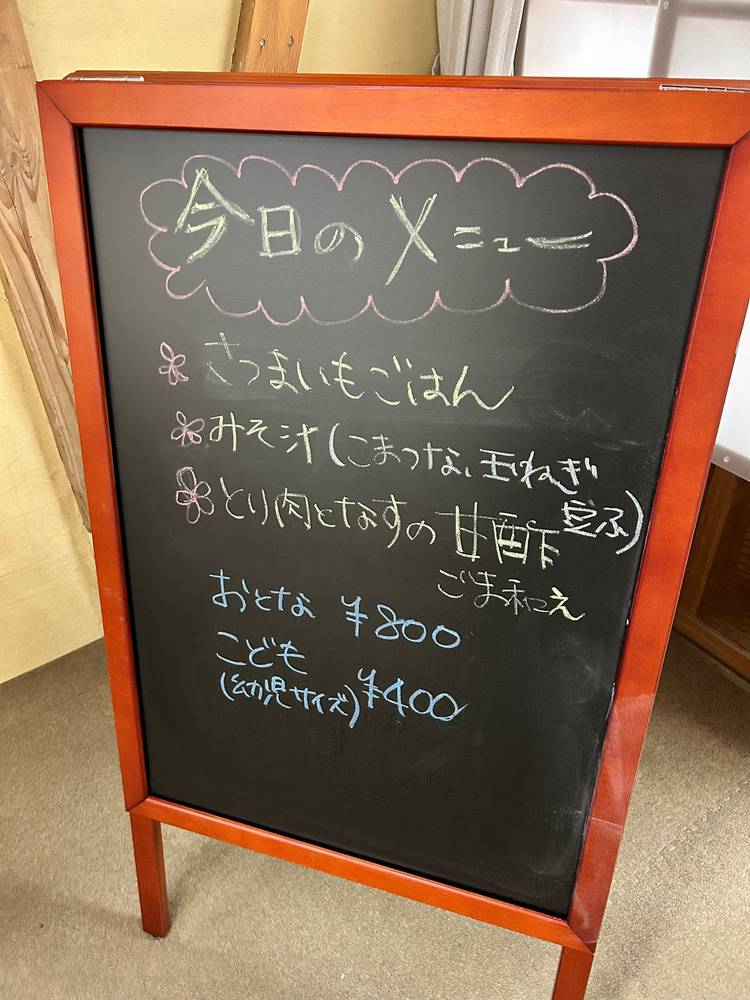 今日のメニュー
さつまいもごはん
みそ汁(こまつな、玉ねぎ
豆ふ)
とり肉となすの甘酢
ごま和え
おとな ¥800
こども
(幼児サイズ) ¥400